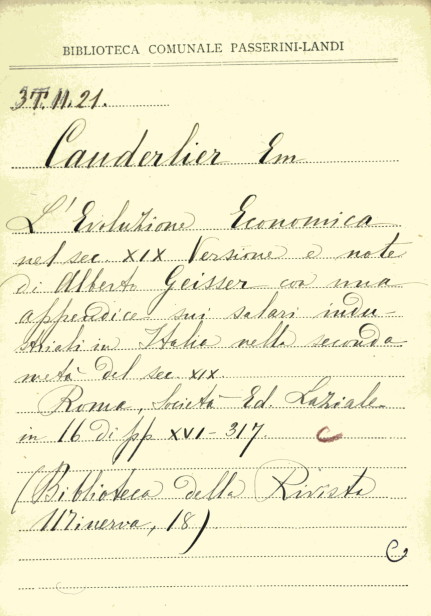 BIBLIOTECA COMUNALE PASSERINI-LANDI
3T.II.21.
Cauderlier Em
L'Evoluzione Economica
nel sec. XIX Versione e note
di Alberto Geisser con una
appendice sui salari indu-
striali in Italia nella seconda
metà del sec. XIX
Roma, Società Ed. Laziale
in 16 di pp XVI-317. C
(Biblioteca della Rivista
Minerva, 18)
C